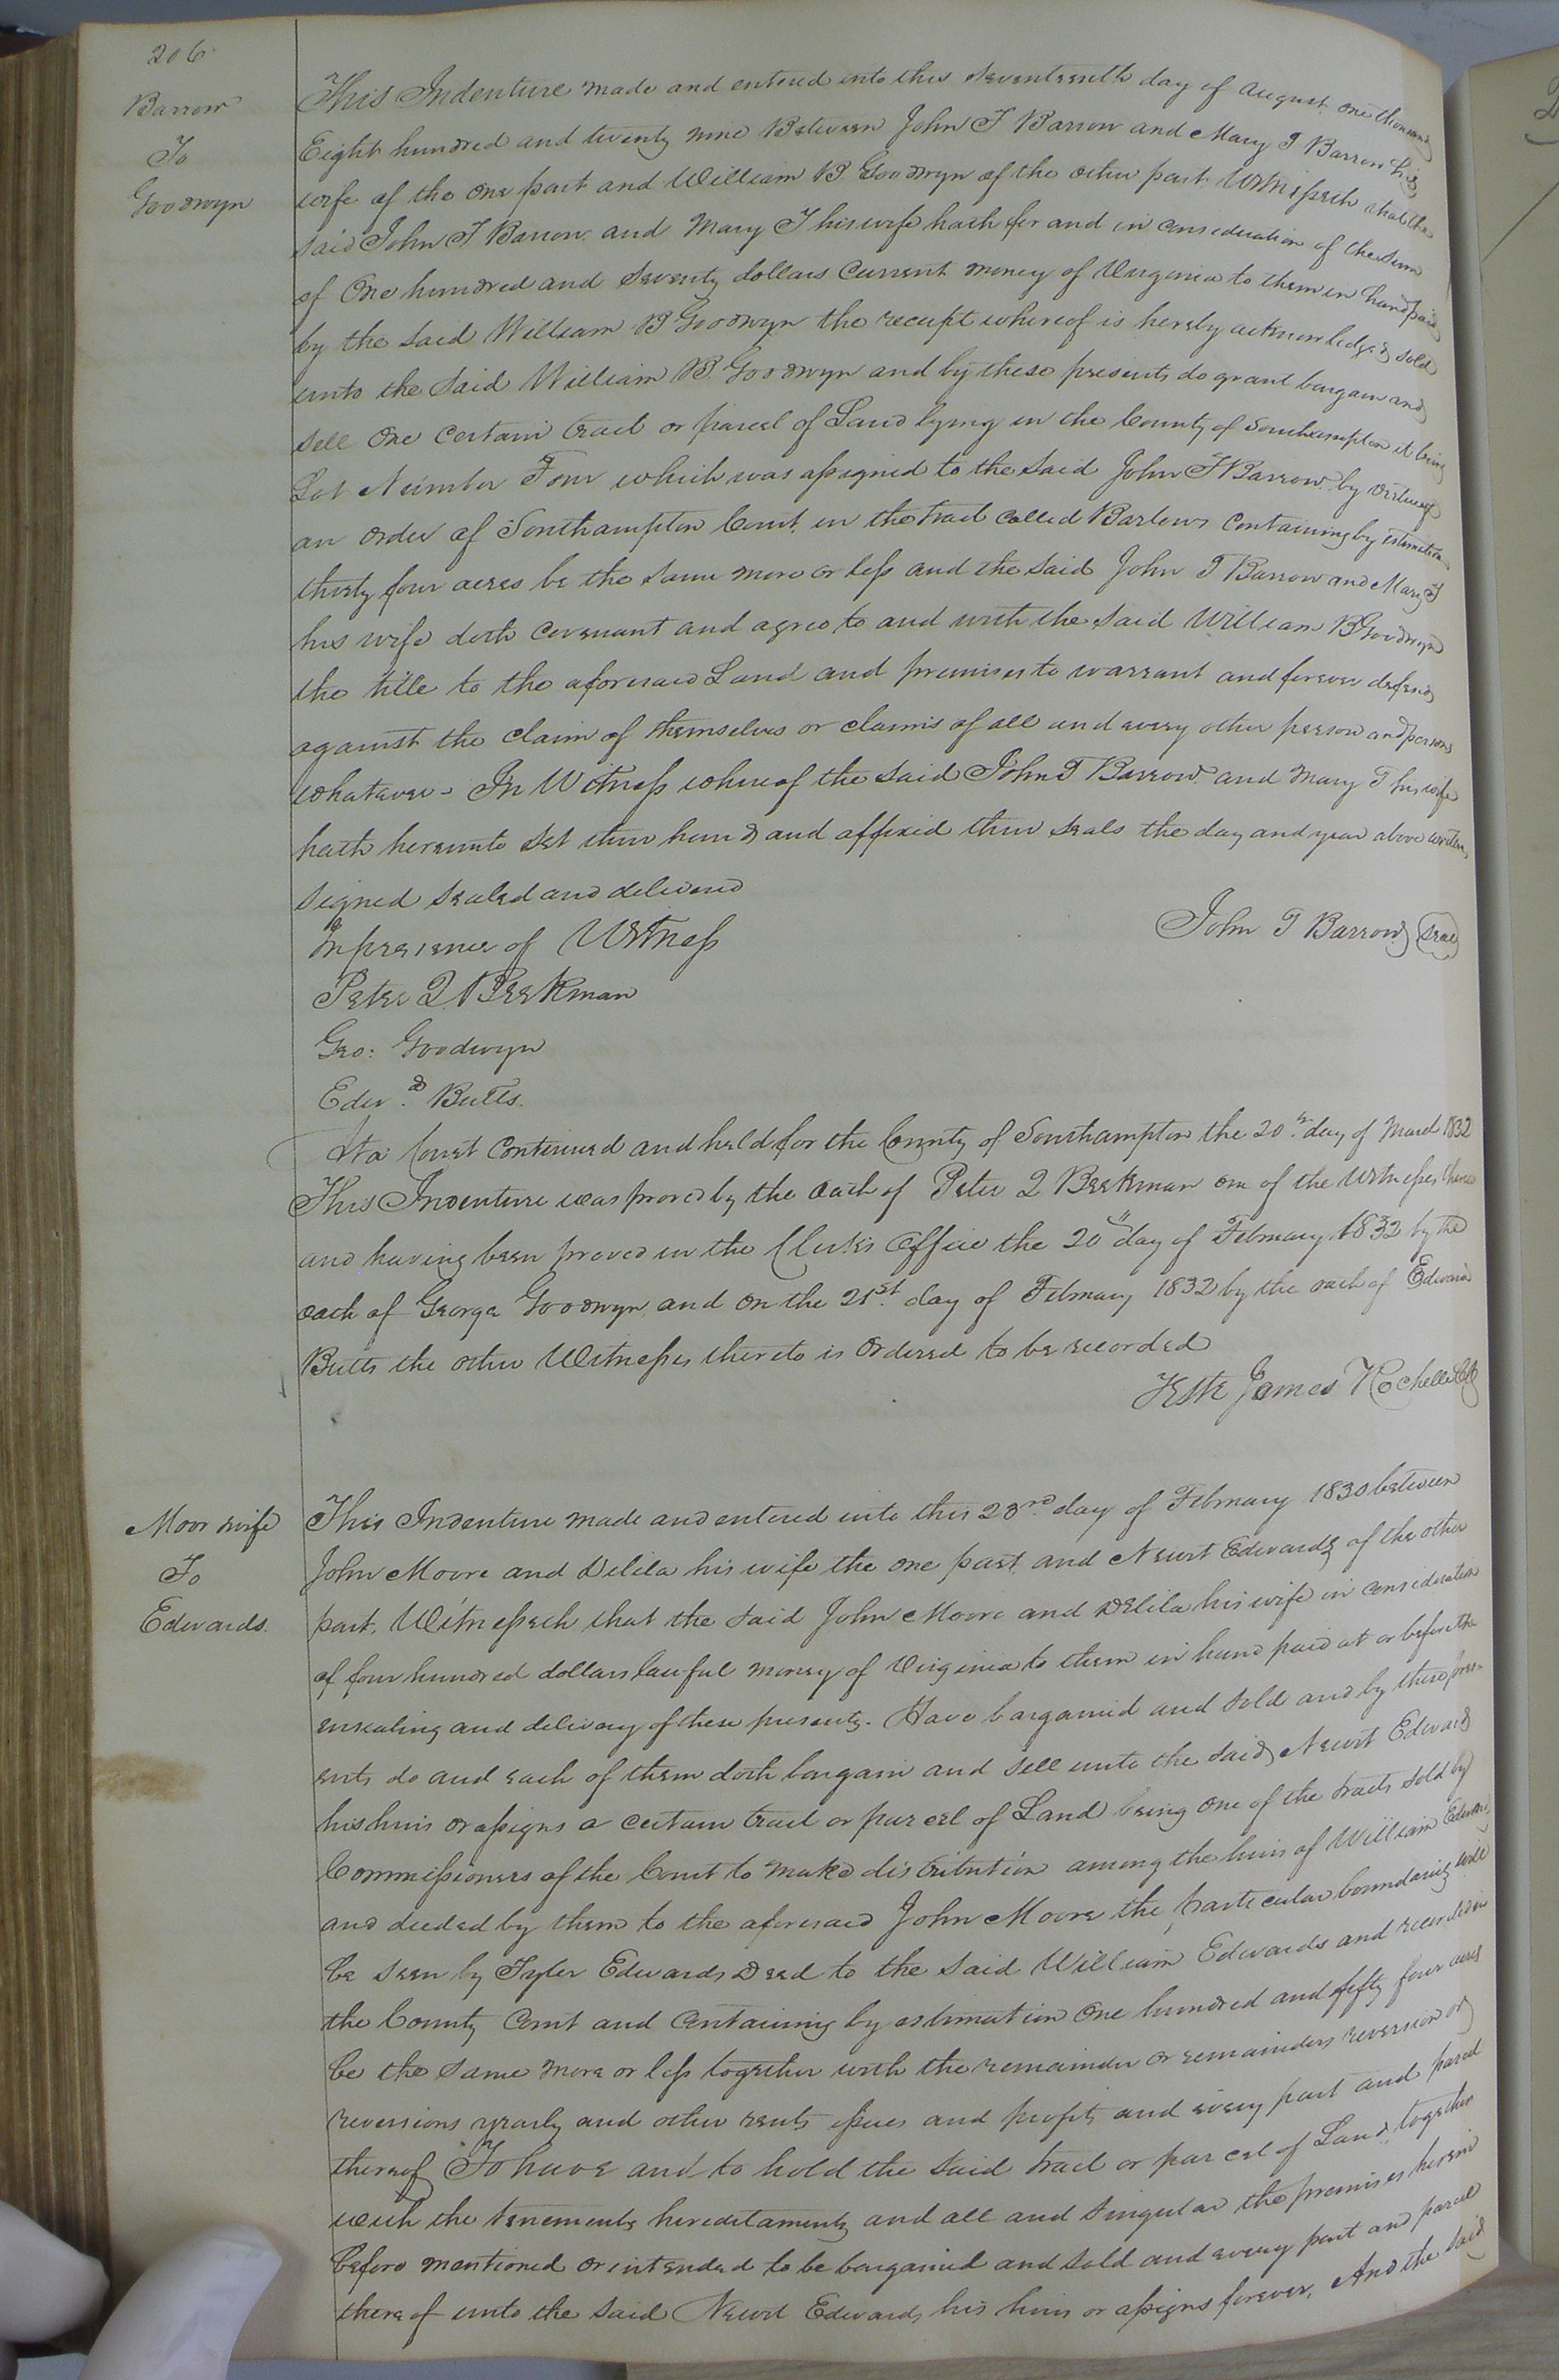 206
Barrow
To
Goodwyn
This Indenture made and entered into this seventeenth day of August one thousand
Eight hundred and twenty nine Between John T Barrow and Mary T Barrow his
wife of the one part and William B. Goodwyn of the other part Witnesseth that the
said John T Barrow and Mary T his wife hath for and in consideration of the sum
of One hundred and seventy dollars Current money of Virginia to them in hand paid
by the said William B Goodwyn the receipt whereof is hereby acknowledged sold
unto the said William B. Goodwyn and by these presents do grant bargain and
sell One certain tract or parcel of Land lying in the County of Southampton it being
Lot Number Four which was assigned to the said John T Barrow by virtue of
an order of Southampton Court in the tract called Barlows containing by estimation
thirty four acres be the same more or less and the said John T Barrow and Mary T
his wife doth covenant and agree to and with the said William B Goodwyn
the title to the aforesaid Land and premises to warrant and forever defend
against the claim of themselves or claims of all and every other person and persons
whatever - In Witness whereof the said John T Barrow and Mary T his wife
hath hereunto set their hand and affixed their seals the day and year above written
signed sealed and delivered
in presence of Witness
John T Barrow seal
Peter Q Beekman
Geo: Goodwyn
Edwd. Butts.
At a Court continued and held for the County of Southampton the 20th day of March 1832
This Indenture was proved by the oath of Peter Q Beekman one of the Witnesses thereto
and having been proved in the Clerk's Office the 20th day of February 1832 by the
oath of George Goodwyn and on the 21st. day of February 1832 by the oath of Edward
Butts the other Witnesses thereto is ordered to be recorded
Teste James Rochelle Clk
Moor & wife
To
Edwards.
This Indenture made and entered into this 23rd day of February 1830 between
John Moore and Delila his wife the one part and Newit Edwards of the other
part. Witnesseth that the said John Moore and Delila his wife in consideration
of four hundred dollars lawful money of Virginia to them in hand paid at or before the
ensealing and delivery of these presents. Have bargained and sold and by these pres-
ents do and each of them doth bargain and sell unto the said Newit Edwards
his heirs or assigns a certain tract or parcel of Land being one of the tracts sold by
Commissioners of the Court to make distribution among the heirs of William Edwards
and deeded by them to the aforesaid John Moore the particular boundaries will
be seen by Tyler Edwards Deed to the said William Edwards and recorded in
the County Court and containing by estimation one hundred and fifty four acres
be the same more or less together with the remainder or remainders reversion or
reversions yearly and other rents issues and profits and every part and parcel
thereof To have and to hold the said tract or parcel of Land together
with the tenements hereditaments and all and singular the premises herein
before mentioned or intended to be bargained and sold and every part and parcel
thereof unto the said Newit Edwards his heirs or assigns forever. And the said